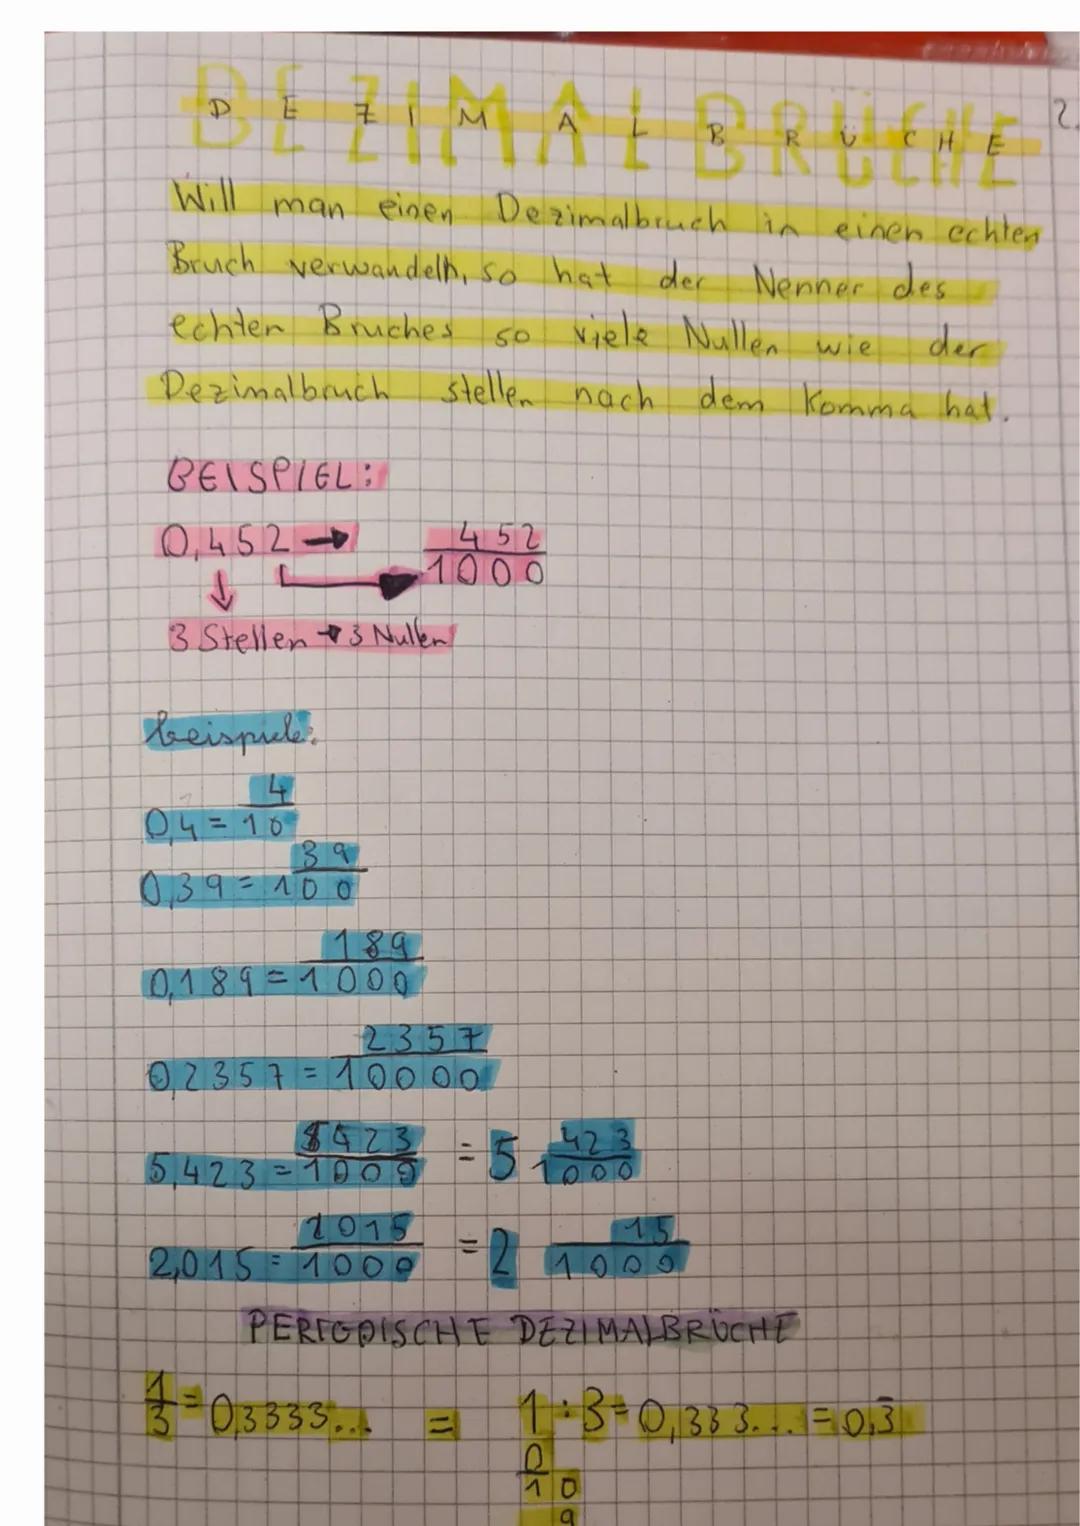 DEZIMALBRÜCHE
DEZIMALBRÜCHE
2.
Will man einen Dezimalbruch in einen echten
Bruch verwandeln, so hat der Nenner des
echten Bruches so viele Nullen wie der
Dezimalbruch stellen nach dem Komma hat.
BEISPIEL:
0,452 → 452/1000
3 Stellen → 3 Nullen
beispiele:
0,4 = 4/10
0,39 = 39/100
0,189 = 189/1000
0,2357 = 2357/10000
5,423 = 5423/1000 = 5 423/1000
2,015 = 2015/1000 = 2 15/1000
PERIODISCHE DEZIMALBRÜCHE
1/3 = 0,3333... = 1:3 = 0,333... = 0,3̄
0
10
9